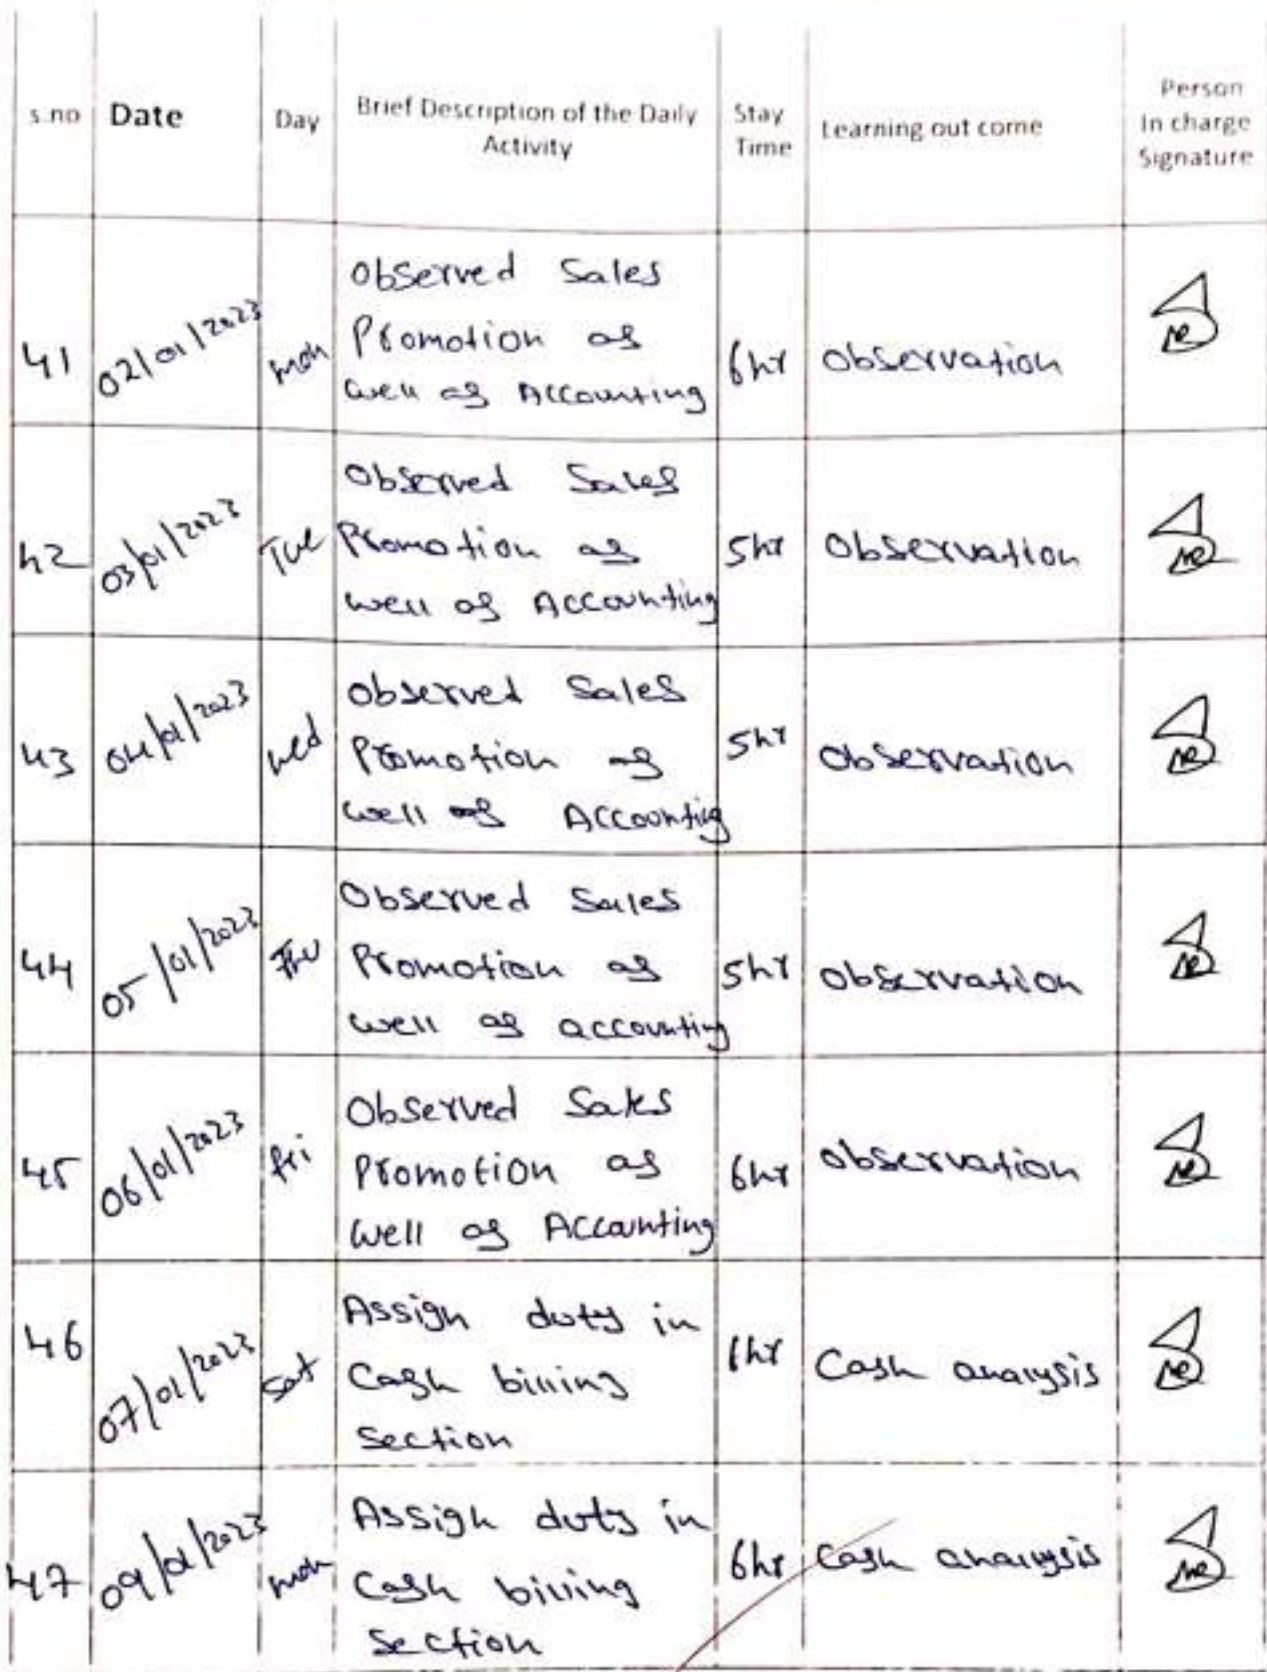 s.no Date Day Brief Description of the Daily Activity Stay Time Learning out come Person In charge Signature
41 02/01/2023 mon Observed Sales
Promotion as
well as Accounting 6hr Observation
42 03/01/2023 Tue Observed Sales
Promotion as
well as Accounting 5hr Observation
43 04/01/2023 wed Observed Sales
Promotion as
well as Accounting 5hr Observation
44 05/01/2023 Thu Observed Sales
Promotion as
well as accounting 5hr Observation
45 06/01/2023 fri Observed Sales
Promotion as
well as Accounting 6hr Observation
46 07/01/2023 Sat Assign duty in
Cash billing
Section hr Cash analysis
47 09/01/2023 mon Assign duty in
Cash billing
Section 6hr Cash analysis